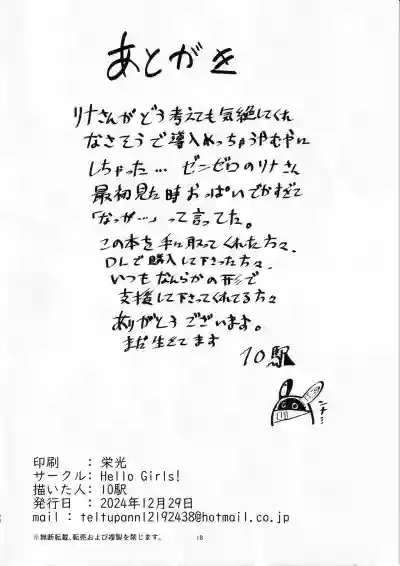 あとがき
リナさんがどう考えても気絶してくれ
なさそうで導入めっちゃうやむやに
しちゃった… ゼンゼロのリナさん
最初見た時おっぱいでかすぎて
「なっが…」って言ってた。
この本を手に取ってくれた方々、
DLで購入して下さった方々、
いつもなんらかの形で
支援して下さってくれてる方々
ありがとうございます。
まだ生きてます
10駅
印刷　　：栄光
サークル：Hello Girls!
描いた人：10駅
発行日　：2024年12月29日
mail : teltupann12192438@hotmail.co.jp
※無断転載、転売および複製を禁じます。
18